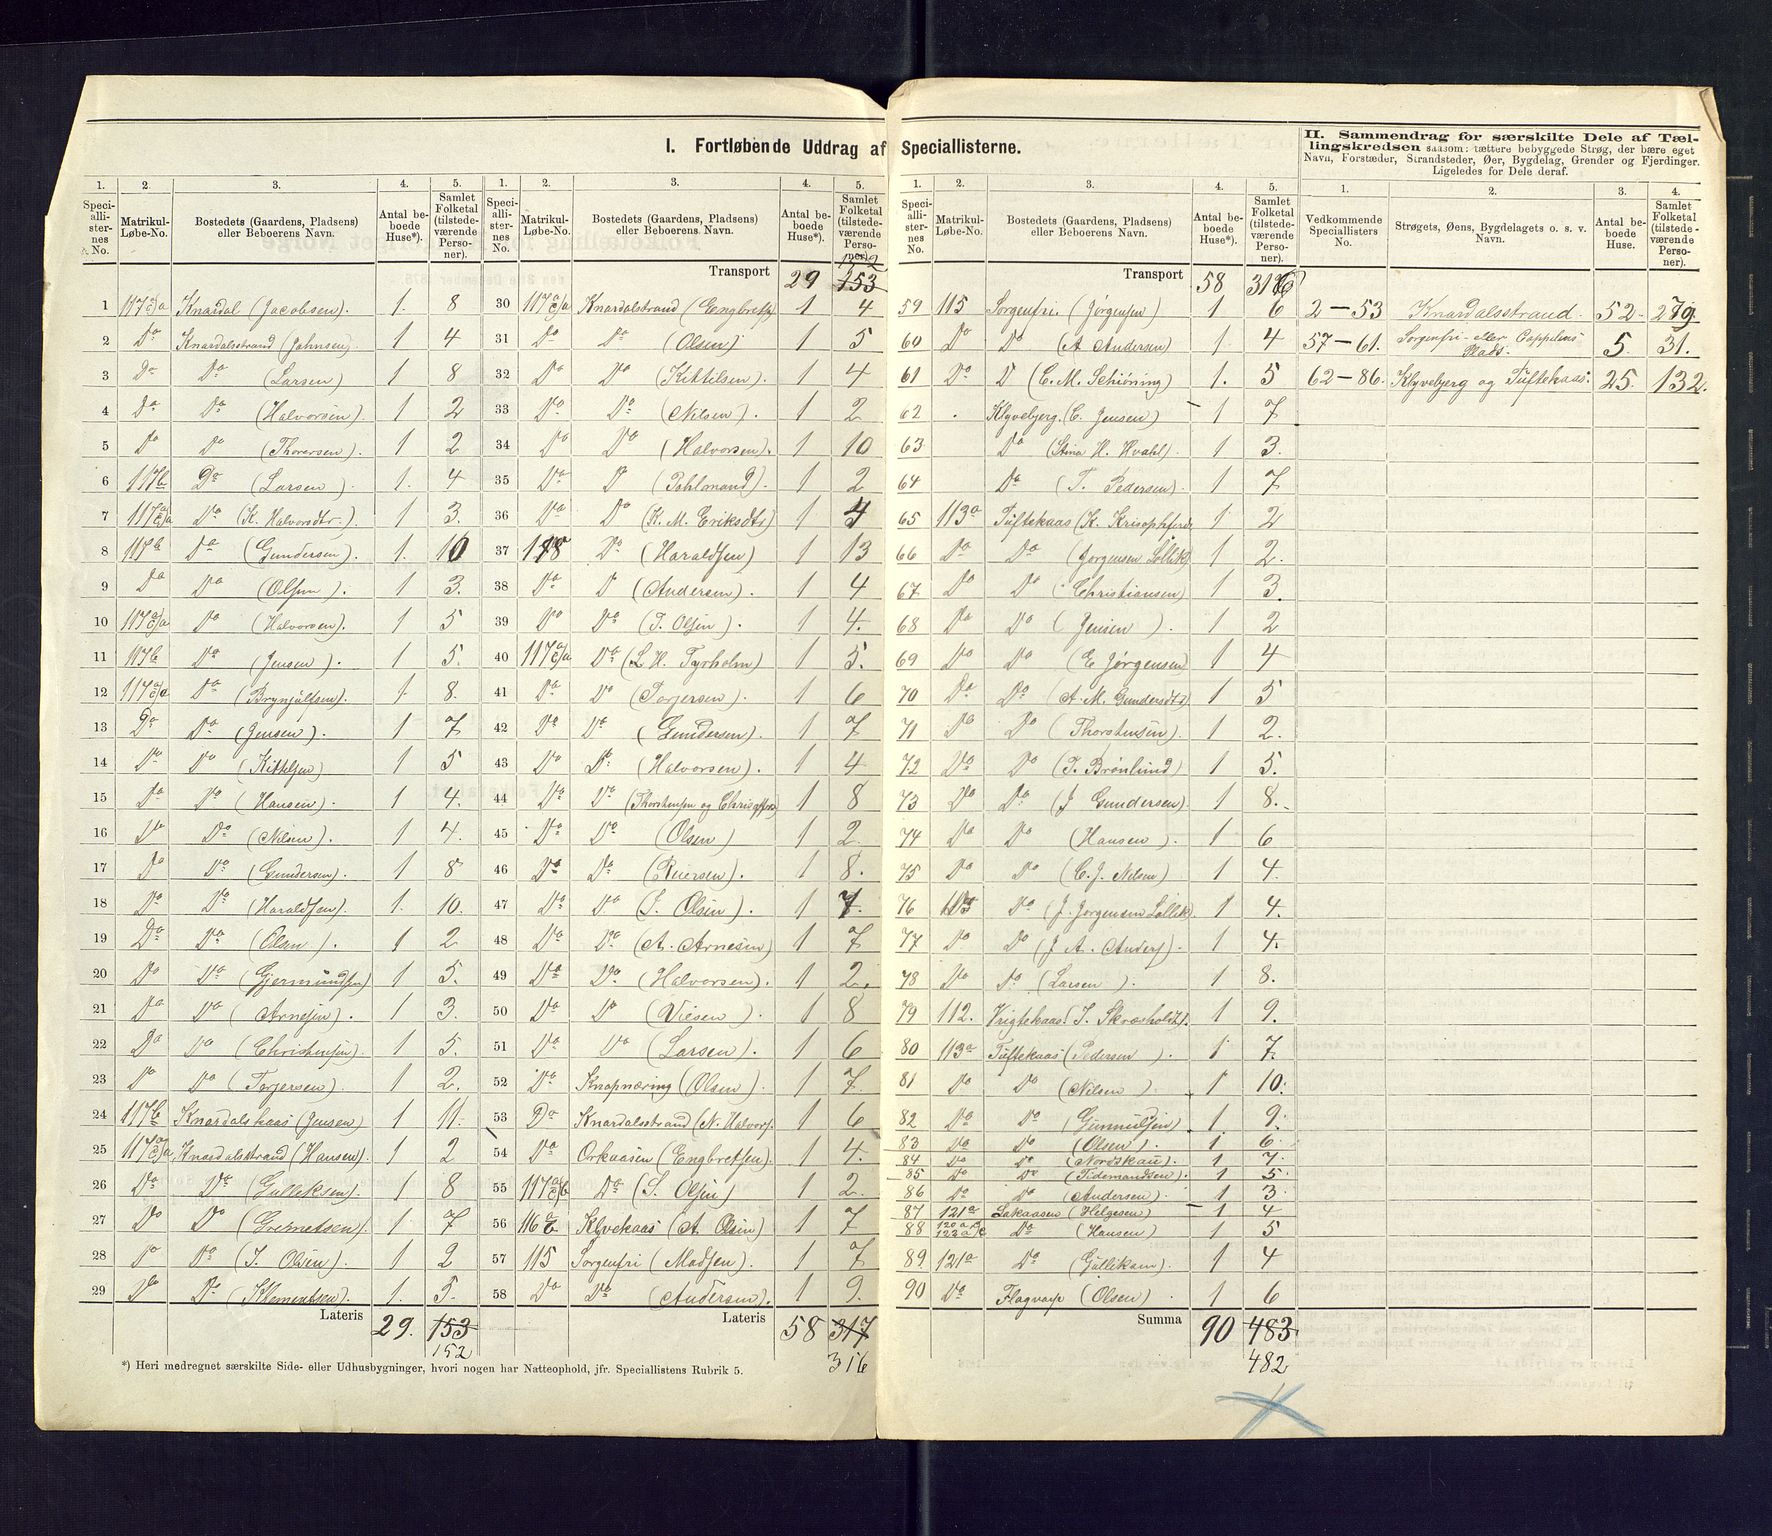 I. Fortløbende Uddrag af Speciallisterne.
II. Sammendrag for særskilte Dele af Tæl-
lingskredsen saasom: tættere bebyggede Strøg, der bære eget
Navn, Forstæder, Strandsteder, Øer, Bygdelag, Grender og Fjerdinger.
Ligeledes for Dele deraf.
1. 2. 3. 4. 5. 1. 2. 3. 4. 5. 1. 2. 3. 4. 5. 1. 2. 3. 4.
Speciallisternes No. Matrikul-Løbe-No. Bostedets (Gaardens, Pladsens) eller Beboerens Navn. Antal beboede Huse*). Samlet Folketal (tilstedeværende Personer).
Speciallisternes No. Matrikul-Løbe-No. Bostedets (Gaardens, Pladsens) eller Beboerens Navn. Antal beboede Huse*). Samlet Folketal (tilstedeværende Personer).
Speciallisternes No. Matrikul-Løbe-No. Bostedets (Gaardens, Pladsens) eller Beboerens Navn. Antal beboede Huse*). Samlet Folketal (tilstedeværende Personer).
Vedkommende Speciallisters No. Strøgets, Øens, Bygdelagets o. s. v. Navn. Antal beboede Huse. Samlet Folketal (tilstedeværende Personer).
1 117 a/a Knardal (Jacobsen) 1. 8
2 Do Knardalsstrand (Johnsen) 1 4
3 Do Do (Larsen) 1 8
4 Do Do (Halvorsen). 1 2
5 Do Do (Thorersen). 1 2
6 117b Do (Larsen). 1. 4
7 Do (K. Halvorsdtr.) 1 3.
8 117b Do (Gundersen). 1. 10
9 Do Do (Olsen). 1 3.
10 Do (Halvorsen). 1 5
11 117b Do (Jensen). 1 5.
12 Do (Brynjulfsen). 1. 8.
13 Do Do (Jensen). 1 7
14 Do Do (Kittelsen) 1 5
15 Do Do (Hansen) 1 4.
16 Do Do (Nilsen). 1 4.
17 Do Do (Gundersen). 1 8
18 Do Do (Haraldsen). 1. 10.
19 Do Do (Olsen). 1 2
20 Do Do (Gjermundsen) 1 5.
21 Do Do (Arnesen) 1 3.
22 Do Do (Christensen). 1 5.
23 Do Do (Torjersen) 1 2.
24 117b Knardalskaas (Jensen) 1 11.
25 Knardalsstrand (Hansen). 1 2
26 Do Do (Gulleksen). 1 8
27 Do Do 1 7
28 Do Do (J. Olsen). 1 2
29 Do Do (Klementsen). 1. 5.
Lateris 29. 153
152
Transport 29 152 153
30 Knardalstrand (Engbrets) 1 4
31 Do Do (Olsen) 1 5
32 Do Do (Kittilsen). 1 4
33 Do Do (Nilsen). 1 2
34 Do Do (Halvorsen). 1 10
35 Do Do (Pohlmand). 1 2
36 Do Do (K. M. Eriksdtr) 1
37 118 Do (Haraldsen) 1 13
38 Do Do (Andersen) 1 4
39 Do Do (T. Olsen). 1 4.
40 Do (L. H. Tyrholm) 1 5.
41 Do Do (Torjersen) 1 6
42 Do Do (Gundersen) 1 7
43 Do Do (Halvorsen). 1 4
44 Do Do (Thorstensen og) 1 8
45 Do Do (Olsen) 1 2.
46 Do Do (Reiersen). 1 8.
47 Do Do (J. Olsen). 1 7.
48 Do Do (A. Arnesen) 1 7
49 Do Do (Halvorsen). 1 2.
50 Do Do (Viesen) 1 8
51 Do Do (Larsen) 1 6
52 Do Knapnæring (Olsen) 1 7.
53 Do Knardalsstrand (N. Halvors. 1 6
54 Do Orkaasen (Engbretsen). 1 4.
55 Do (S. Olsen) 1 2.
56 116 Klyvekaas (A. Olsen) 1 7
57 115 Sorgenfri (Madsen). 1 7
58 Do Do (Andersen). 1 9.
Lateris 58 317
316
Transport 58 316
59 115 Sorgenfri. (Jørgensen) 1 6
60 Do Do (A Andersen) 1. 4
61 Do D (C. M. Schiøning) 1. 5
62 Klyvebjerg. (C. Jensen) 1 7
63 Do (Stina H. Hvahl). 1 3.
64 Do (T. Pedersen) 1 7
65 113a Tuftekaas 1 2
66 Do Do (Jorgensen Løllik) 1 2.
67 Do Do (Christiansen) 1 3.
68 Do Do (Jensen). 1 2
69 Do Do (E Jørgensen 1 4
70 Do Do (A. M. Gundersdtr) 1 5
71 Do Do (Thorstensen). 1 2.
72 Do Do (J. Brønlund) 1 5.
73 Do Do (J Gundersen) 1 8.
74 Do Do (Hansen) 1 6
75 Do Do (C. J. Nilsen) 1 4.
76 113 Do (J. Jorgensen Løllik. 1 4.
77 Do Do (J A. Anders). 1 4.
78 Do Do (Larsen). 1 8.
79 112. 1 9.
80 113a Tuftekaas (Pedersen). 1 7.
81 Do Do (Nilsen) 1 10.
82 Do Do (Gunnulfsen) 1 9.
83 Do Do (Olsen). 1 6.
84 Do Do (Nordskau). 1 7.
85 Do Do (Tidemandsen). 1 5
86 Do Do (Andersen). 1 3.
87 121a Lakaasen (Helgesen) 1 4
88 Do (Hansen) 1 5
89 121a Do (Gullikson) 1 4
90 Do (Olsen) 1 6
Summa 90 483
482
2-53 Knardalsstrand. 52. 279.
57-61. Sorgenfri eller Cappelens Plads. 5. 31.
62-86. Klyvebjerg og Tuftekaas. 25. 132.
*) Heri medregnet særskilte Side- eller Udhusbygninger, hvori nogen har Natteophold, jfr. Speciallistens Rubrik 5.